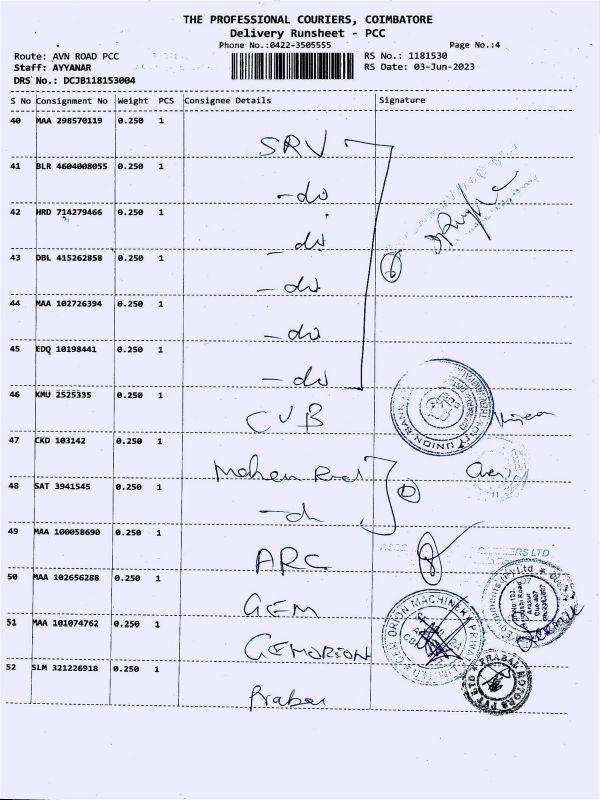 THE PROFESSIONAL COURIERS, COIMBATORE
Delivery Runsheet - PCC
Phone No.:0422-3505555 Page No.:4
Route: AVN ROAD PCC RS No.: 1181530
Staff: AYYANAR RS Date: 03-Jun-2023
DRS No.: DCJB118153004
S No Consignment No Weight PCS Consignee Details Signature
40 MAA 298570119 0.250 1
SRV
41 BLR 4604008055 0.250 1
-do
42 HRD 714279466 0.250 1
-do
43 DBL 415262858 0.250 1
-do
44 MAA 102726394 0.250 1
-do
45 EDQ 10198441 0.250 1
-do
46 KMU 2525335 0.250 1
CUB
UNION BANK
47 CKD 103142 0.250 1
48 SAT 3941545 0.250 1
49 MAA 100058690 0.250 1
ARC
50 MAA 102656288 0.250 1
GEM
51 MAA 101074762 0.250 1
GEMORION
ORION MACHINERY PRIVATE LIMITED
52 SLM 321226918 0.250 1
Prabal
PRABAL MOTORS PVT LTD